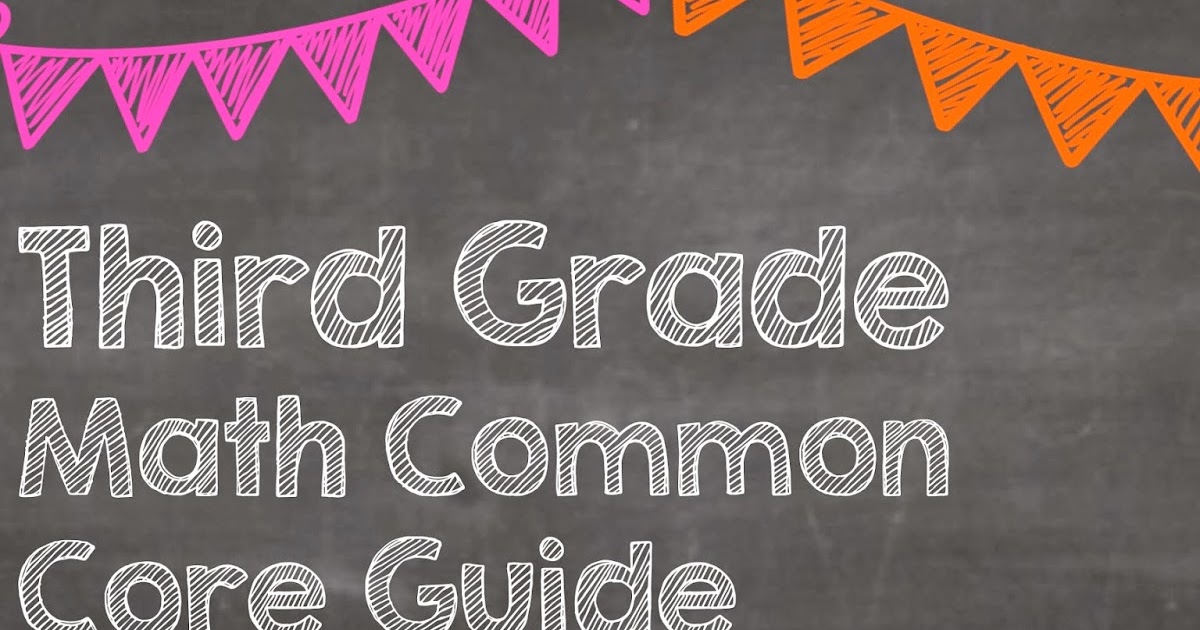 Third Grade
Math Common
Core Guide